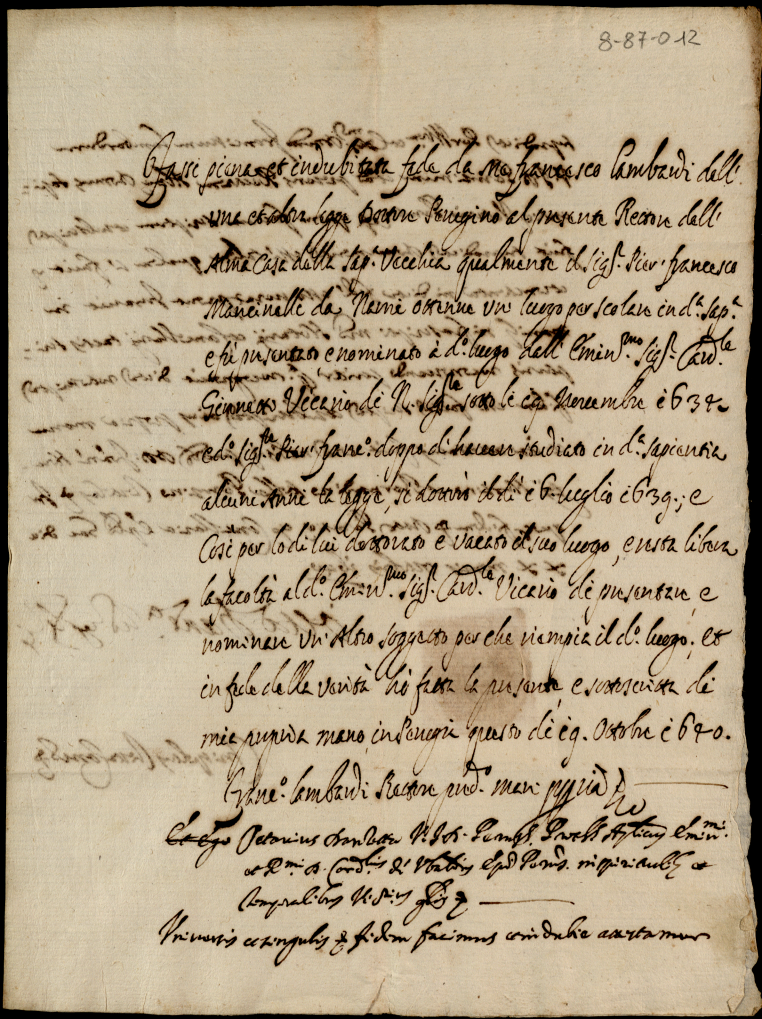 8-87-012
Fassi piena et indubitata fede da me Francesco Lambardi dell'
una et altra legge Dottore Perugino al presente Rettore dell'
Alma Casa della Sap.ª Vecchia qualmente il Sig.r Pier'francesco
Mancinelli da Narni ottenne un' luogo per scolare in d.ª Sap.ª
e fù presentato e nominato à d.º luogo dall' Emin.mo Sig.r Card.le
Ginnetto Vicario di N. Sig.re sotto li 19 Novembre 1634
e d.º Sig.r Pier' Franc.º doppo d'havere studiato in d.ª sapientia
alcuni Anni la legge, si dottorò il di 16 luglio 1639; e
Così per lo di lui dottorato è vacato il suo luogo, e resta libera
la facoltà al d.º Emin.mo Sig.r Card.le Vicario di presentare, e
nominare un' Altro soggetto per che riempia il d.º luogo; et
in fede della verità hò fatta la presente, e sottoscritta di
mia propria mano, in Perugia questo dì 19. Ottobre 1640.
Franc.º Lambardi Rettore pred.º man' ppria
Octavius
Emin.mi
et R.mi D. Card.lis
in spiritualibus et
temporalibus
Universis et singulis fidem facimus et indubie attestamur